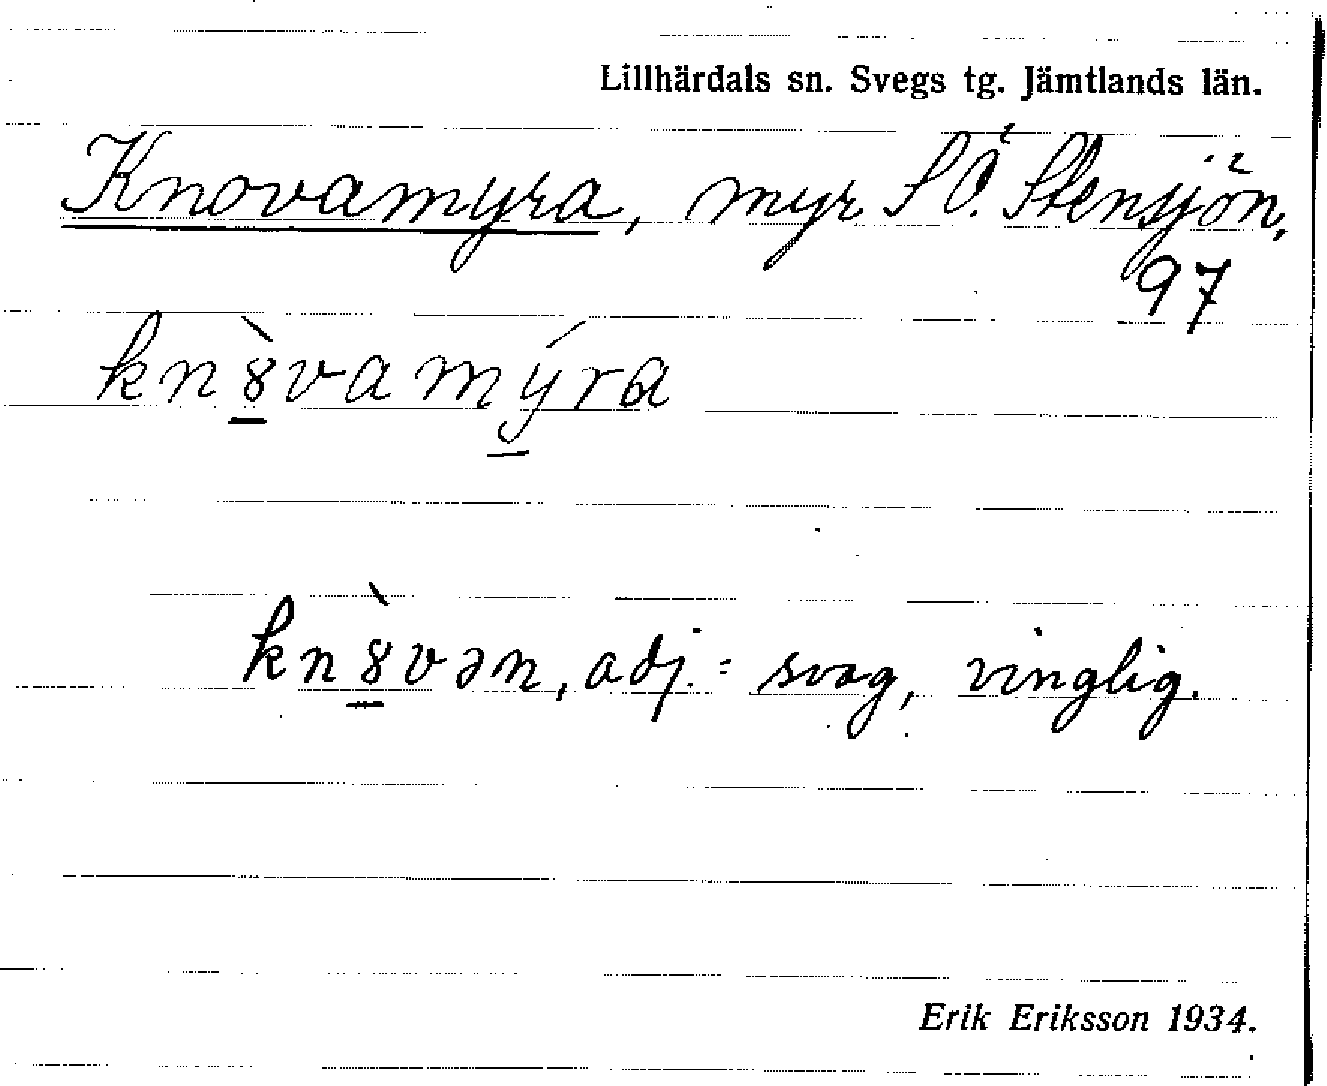 Lillhärdals sn. Svegs tg. Jämtlands län.
Knovamyra, myr SÖ. Stensjön,
97
kn8̠̀vamý̠ra
kn8̠̀vən, adj. = svag, vinglig.
Erik Eriksson 1934.